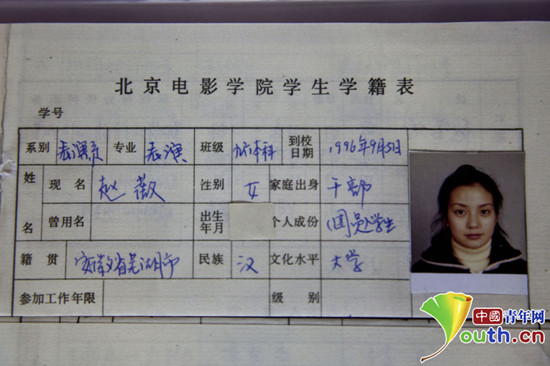 北京电影学院学生学籍表
学号
系别 表演系 专业 表演 班级 96本科 到校日期 1996年9月5日
姓名 现名 赵薇 性别 女 家庭出身 干部
曾用名 出生年月 个人成份 团员学生
籍贯 安徽省芜湖市 民族 汉 文化水平 大学
参加工作年限 级别
中國青年网
youth.cn